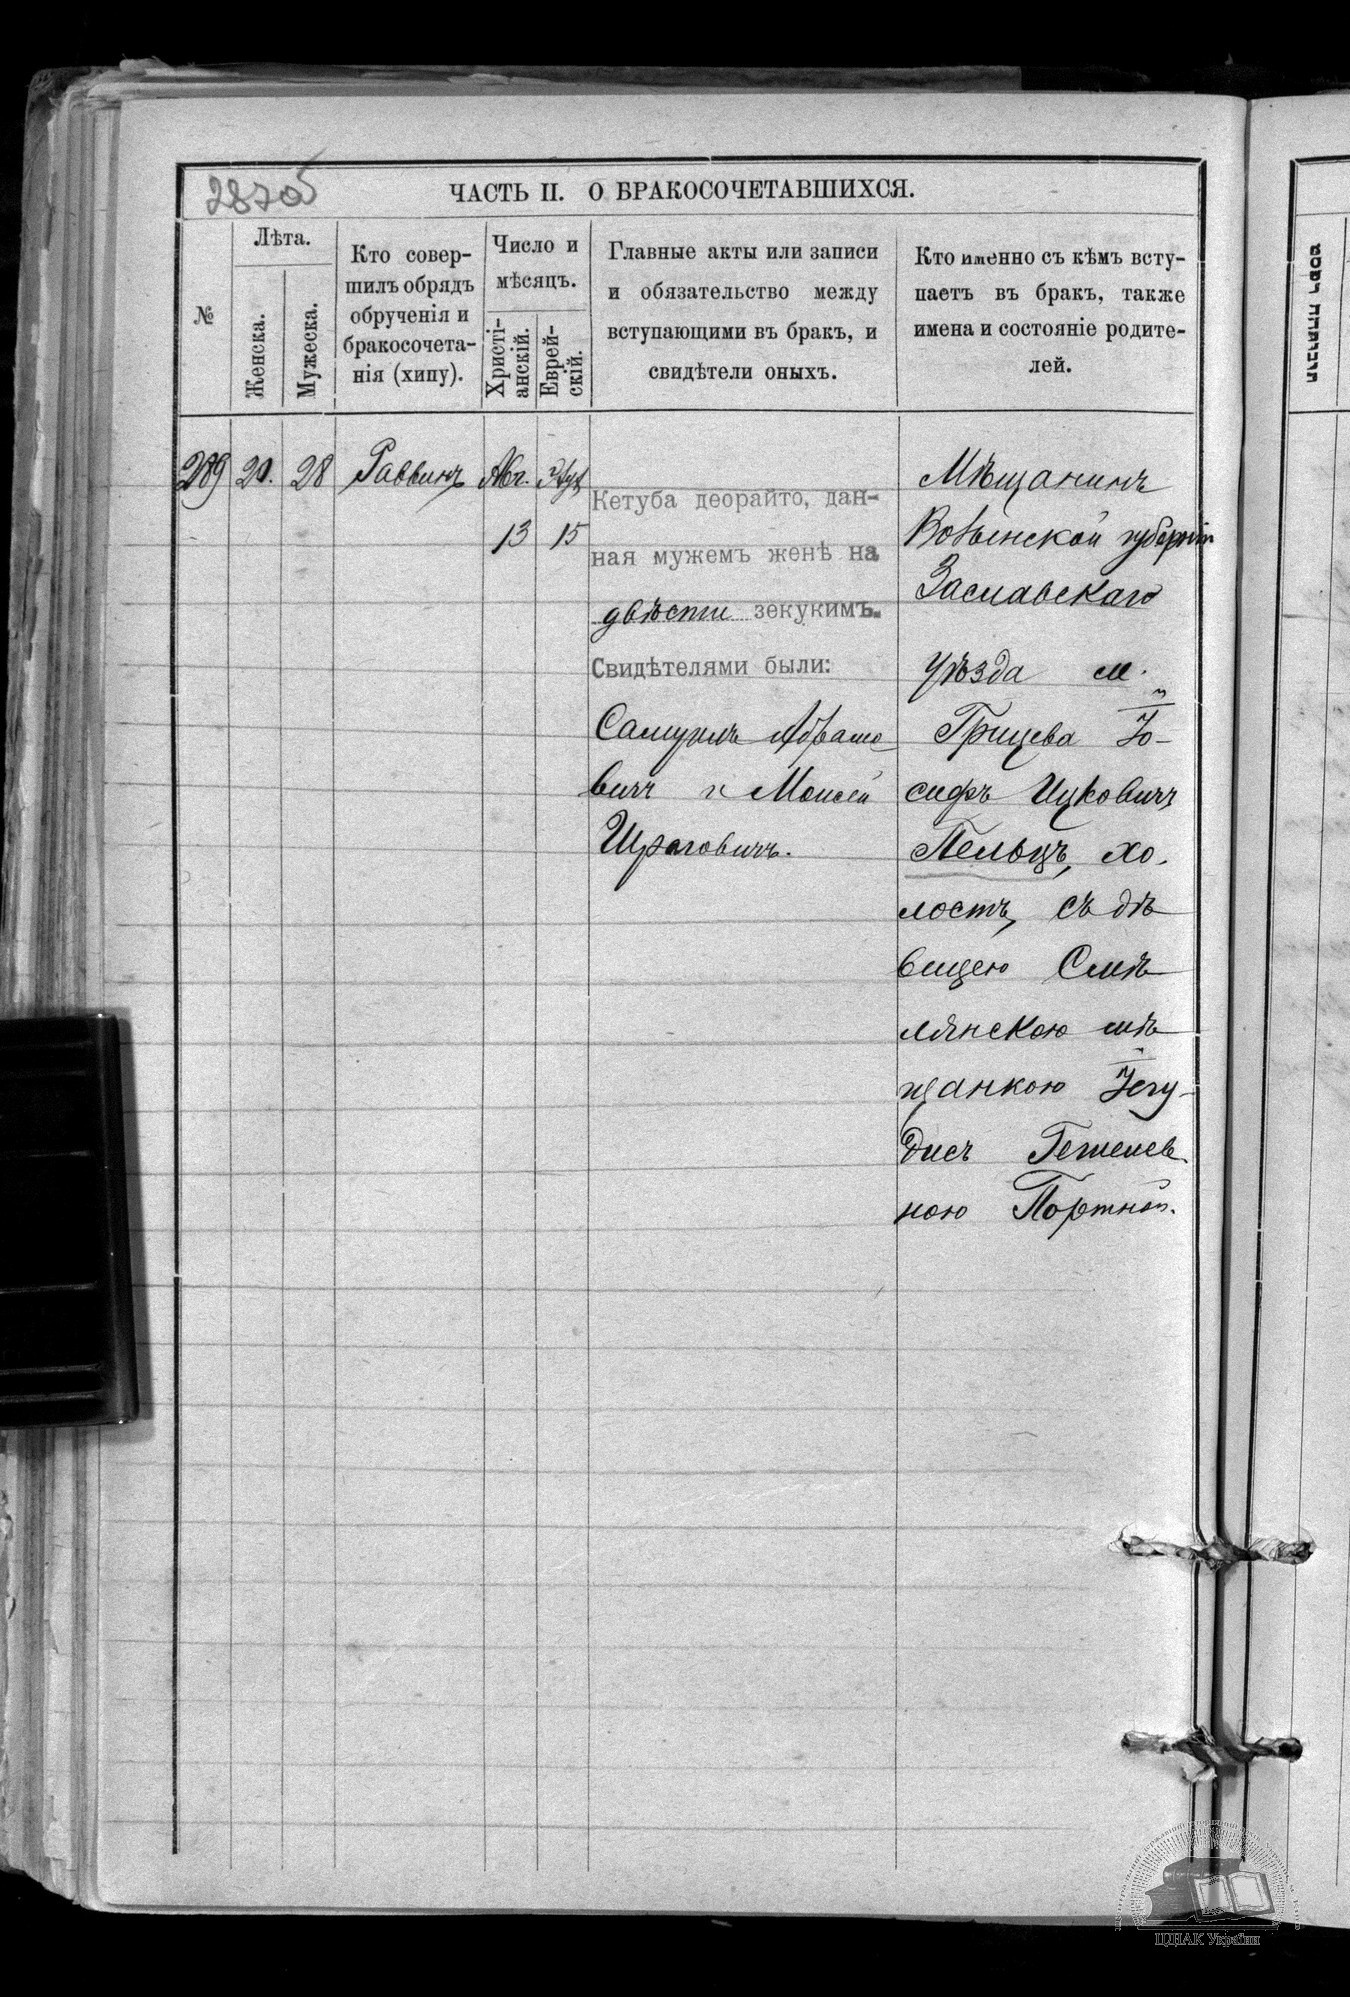 287об
ЧАСТЬ II. О БРАКОСОЧЕТАВШИХСЯ.
№
Лѣта.
Женска.
Мужеска.
Кто совер-
шилъ обрядъ
обрученія и
бракосочета-
нія (хипу).
Число и
мѣсяцъ.
Христі-
анскій.
Еврей-
скій.
Главные акты или записи
и обязательство между
вступающими въ бракъ, и
свидѣтели оныхъ.
Кто именно съ кѣмъ всту-
паетъ въ бракъ, также
имена и состояніе родите-
лей.
289 20. 28 Раввинъ Авг.
13 15
Кетуба деорайто, дан-
ная мужемъ женѣ на
двѣсти зекукимъ.
Свидѣтелями были:
Самуилъ Абрамо
вичъ и Моисей
Шраговичъ.
Мѣщанинъ
Волынской губерніи
Заславскаго
уѣзда м.
Грицева Іо-
сифъ Ицковичъ
Пельцъ, хо-
лостъ, съ дѣ
вицею Смѣ
лянскою мѣ
щанкою Іегу-
дисъ
ною Портной.
ЦДІАК України